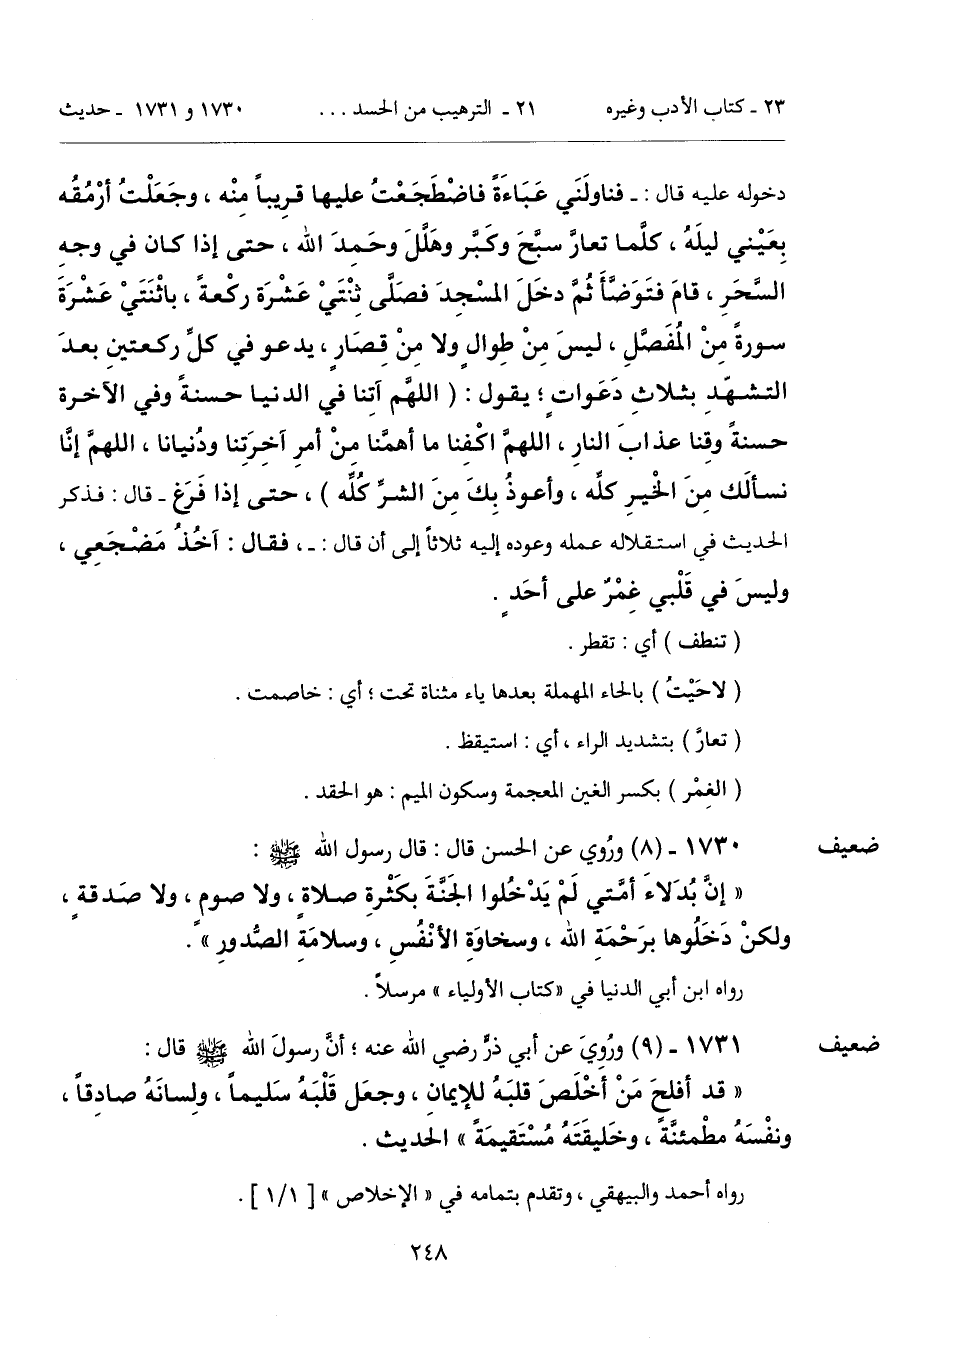 ٢٣ ـ كتاب الأدب وغيره ٢١ ـ الترهيب من الحسد ... ١٧٣٠ و ١٧٣١ ـ حديث
دخوله عليه قال : ـ فناولَني عَبَاءَةً فاضْطَجَعْتُ عليها قريباً منْه ، وجَعَلْتُ أرْمُقُه
بِعَيْني ليلَهُ ، كلَّما تعارَّ سبَّحَ وكَبَّر وهَلَّلَ وحَمِدَ الله ، حتى إذا كان في وجهِ
السَّحَرِ ، قامَ فتَوَضَّأَ ثُمَّ دخَلَ المسْجِدَ فصَلَّى ثِنْتَيْ عَشْرَة ركْعةً ، باثْنَتَيْ عَشْرَةَ
سورةً مِنْ المُفَصَّلِ ، ليسَ مِنْ طِوالٍ ولا مِنْ قِصَارٍ ، يدعو في كلِّ ركعتينِ بعدَ
التشهّدِ بثلاثِ دَعَواتٍ ؛ يقول : ( اللهُّم آتِنا في الدنيا حسنةً وفي الآخرة
حسنةً وقِنا عذابَ النارِ ، اللهمَّ اكْفِنا ما أهمَّنا مِنْ أمرِ آخِرَتِنا ودُنيانا ، اللهمَّ إنَّا
نسألَك مِنَ الخْيرِ كلِّه ، وأعوذُ بِكَ مِنَ الشرِّ كُلِّه ) ، حتى إذا فَرَغ ـ قال : فذكر
الحديث في استقلاله عمله وعوده إليه ثلاثاً إلى أن قال : ـ ، فقال : آخُذُ مَضْجَعِي ،
وليسَ في قَلْبي غِمْرٌ على أحَدٍ .
( تنطف ) أي : تقطر .
( لاحَيْتُ ) بالحاء المهملة بعدها ياء مثناة تحت ؛ أي : خاصمت .
( تعارَّ ) بتشديد الراء ، أي : استيقظ .
( الغِمْر ) بكسر الغين المعجمة وسكون الميم : هو الحقد .
ضعيف ١٧٣٠ ـ (٨) ورُوي عن الحسن قال : قال رسول الله ﷺ :
« إنَّ بُدَلاءَ أمَّتي لَمْ يَدْخُلوا الجَنَّةَ بكَثْرةِ صلاةٍ ، ولا صومٍ ، ولا صَدقةٍ ،
ولكنْ دَخَلُوها برَحْمَةِ الله ، وسخاوَةِ الأنْفُسِ ، وسلامَةِ الصُّدورِ » .
رواه ابن أبي الدنيا في «كتاب الأولياء » مرسلاً .
ضعيف ١٧٣١ ـ (٩) ورُويَ عن أبي ذرٍّ رضي الله عنه ؛ أنَّ رسولَ الله ﷺ قال :
« قد أفلحَ مَنْ أخْلَصَ قلبَهُ للإيمانِ ، وجعَل قَلْبَهُ سَليماً ، ولِسانَهُ صادِقاً ،
ونفْسَهُ مطْمئنَّةً ، وخَليقَتَهُ مُسْتَقيمَةً » الحديث .
رواه أحمد والبيهقي ، وتقدم بتمامه في « الإخلاص » [ ١/١ ] .
٢٤٨